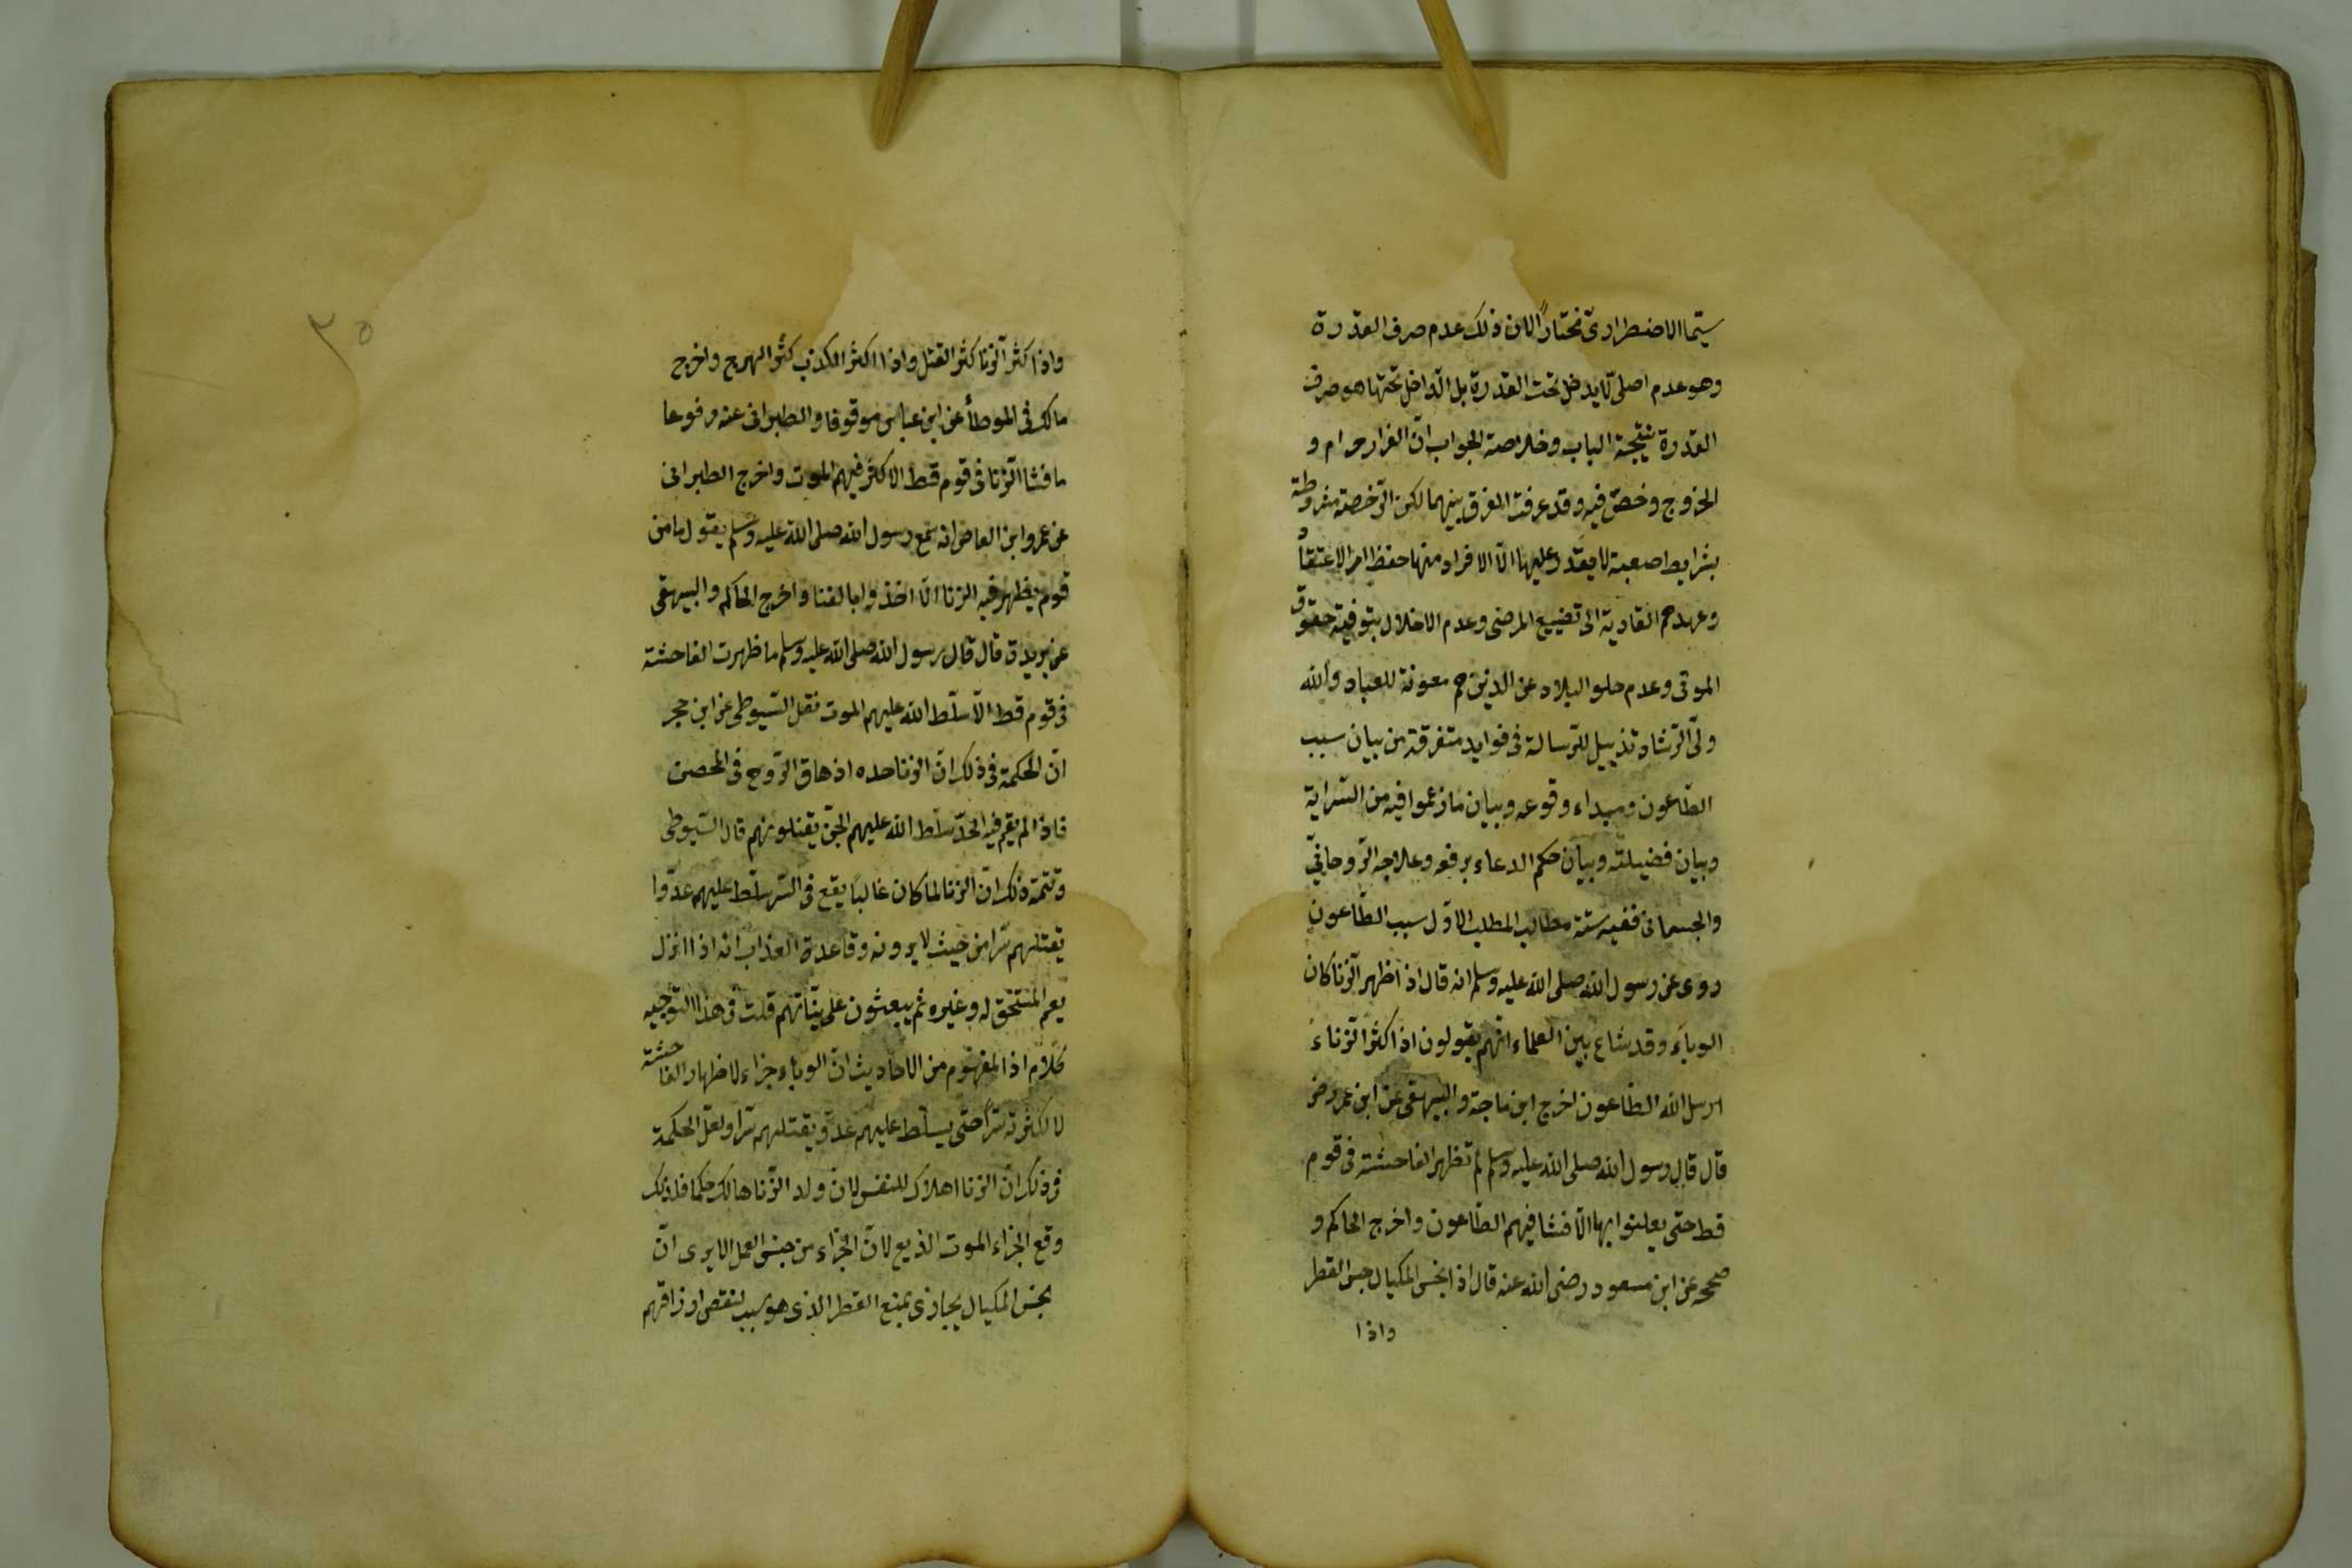 سيما الاضطرارى مختارًا لان ذلك عدم صرف القدرة
وهو عدم اصلى لا يدخل تحت القدرة بل الداخل تحتها هو صرف
القدرة نتيجة الباب وخلاصة الجواب انّ الفرار حرام و
الخروج رخص فيه وقد عرفت الفرق بينهما لكن الرّخصة مشروطة
بشرايط صعبة لا يقدر عليها الّا الافراد منها حفظ امر الاعتقاد
وعدم التأدية الى تضييع المرضى وعدم الاخلال بتوفية حقوق
الموتى وعدم خلو البلاد عن الدين هم معونة للعباد والله
ولىّ الرّشاد تذييل للرّسالة فى فوايد متفرقة من بيان سبب
الطّاعون ومبداء وقوعه وبيان ما زعموا فيه من السّراية
وبيان فضيلته وبيان حكم الدعاء برفعه وعلاجه الرّوحانىّ
والجسمانى ففيه ستة مطالب المطلب الاوّل سبب الطّاعون
روى عن رسول الله صلى الله عليه وسلم انه قال اذا ظهر الزنا كان
الوباء وقد شاع بين العلماء انهم يقولون اذا كثر الزّناء
ارسل الله الطّاعون اخرج ابن ماجة والبيهقى عن ابن عمر رض
قال قال رسول الله صلى الله عليه وسلم لم تظهر الفاحشة فى قوم
قط حتى يعلنوا بها الّا فشا فيهم الطّاعون واخرج الحاكم و
صححه عن ابن مسعود رضى الله عنه قال اذا بخس المكيال حبس القطر
واذا
واذا كثر الزنا كثر القتل واذا اكثر الكذب كثر الهرج واخرج
مالك فى الموطأ عن ابن عباس موقوفا والطبرانى عنه مرفوعا
ما فشا الزّنا فى قوم قط الا كثر فيهم الموت واخرج الطبرانى
عن عمرو ابن العاص انه سمع رسول الله صلى الله عليه وسلم يقول ما من
قوم يظهر فيه الزنا الّا اخذوا بالفنا واخرج الحاكم والبيهقى
عن بريدة قال قال رسول الله صلى الله عليه وسلم ما ظهرت الفاحشة
فى قوم قط الّا سلّط الله عليهم الموت نقل السّيوطى عن ابن حجر
انّ الحكمة فى ذلك انّ الزنا حده اذهاق الرّوح فى المحصن
فاذا لم يقم فيه الحدّ سلّط الله عليهم الجنّ يقتلونهم قال السّيوطى
وتتمة ذلك انّ الزنا لما كان غالبًا يقع فى السّر سلّط عليهم عدوّا
يقتلهم سرّا من حيث لا يرونه وقاعدة العذاب انه اذا انزل
يعم المستحق له وغيره ثم يبعثون على نيّاتهم قلت فى هذا التوجيه
كلام اذ المفهوم من الاحاديث انّ الوباء جزاء لاظهار الفاحشة
لا لكثرته سرًّا حتى يسلّط عليهم عدوّ يقتلهم سرّا ولعلّ الحكمة
فى ذلك انّ الزنا اهلاك للنفس لان ولد الزّنا هالك حكما فلذلك
وقع الجزاء الموت الذريع لانّ الجزاء من جنس العمل الا يرى انّ
بخس المكيال يجازى بمنع القطر الذى هو سبب لنقص ارزاقهم